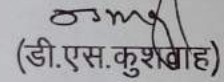 (डी.एस.कुशवाह)